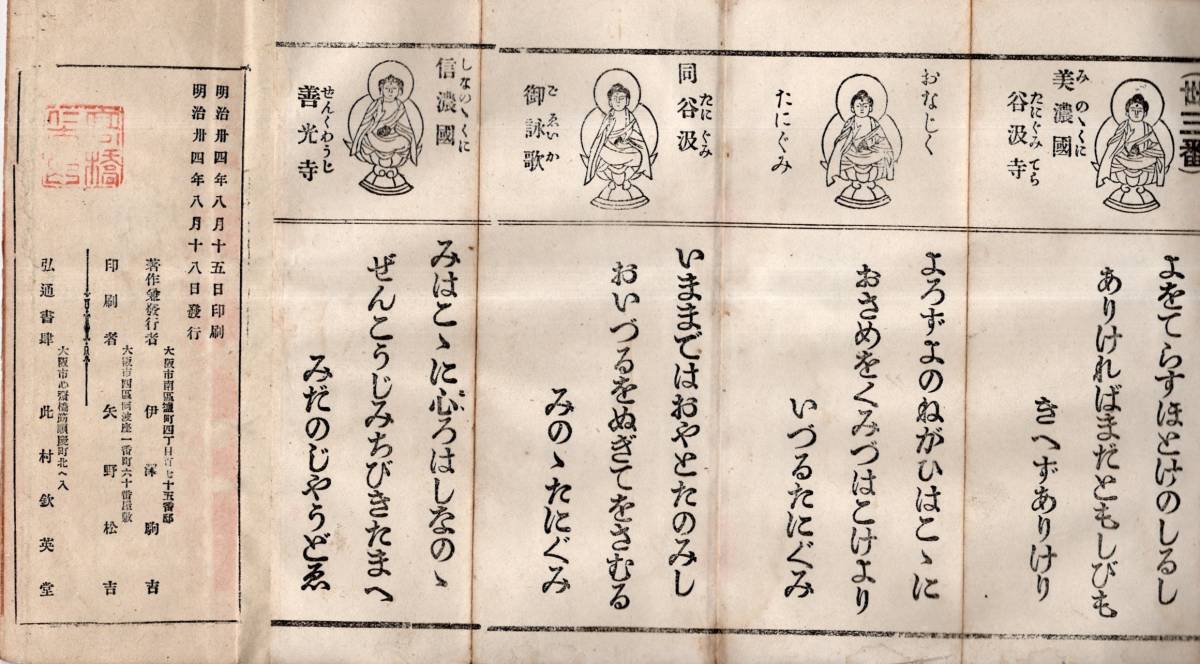 (卅三番)
美濃國
みのゝくに
谷汲寺
たにぐみてら
よをてらすほとけのしるし
ありければまだともしびも
きへずありけり
おなじく
たにぐみ
よろずよのねがひはこゝに
おさめをくみづはこけより
いづるたにぐみ
同谷汲
たにぐみ
御詠歌
ごゑいか
いままではおやとたのみし
おいづるをぬぎてをさむる
みのゝたにぐみ
信濃國
しなのゝくに
善光寺
せんくわうじ
みはこゝに心ろはしなのゝ
ぜんこうじみちびきたまへ
みだのじやうどゑ
明治卅四年八月十五日印刷
明治卅四年八月十八日發行
大阪市南區鹽町四丁目百七十五番邸
著作兼發行者 伊澤駒吉
大阪市西區阿波座一番町六十番屋敷
印刷者 矢野松吉
大阪市心齋橋筋順慶町北へ入
弘通書肆 此村欽英堂